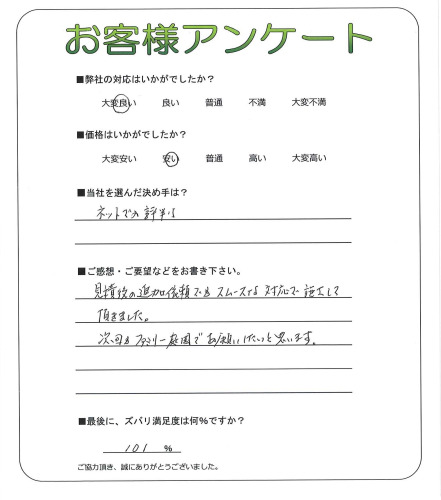 お客様アンケート
■弊社の対応はいかがでしたか？
大変良い 良い 普通 不満 大変不満
■価格はいかがでしたか？
大変安い 安い 普通 高い 大変高い
■当社を選んだ決め手は？
ネットでの評判
■ご感想・ご要望などをお書き下さい。
見積後の追加依頼でもスムーズな対応で
頂きました。
次回もファミリー庭園でお願いしたいと思います。
■最後に、ズバリ満足度は何%ですか？
101 %
ご協力頂き、誠にありがとうございました。